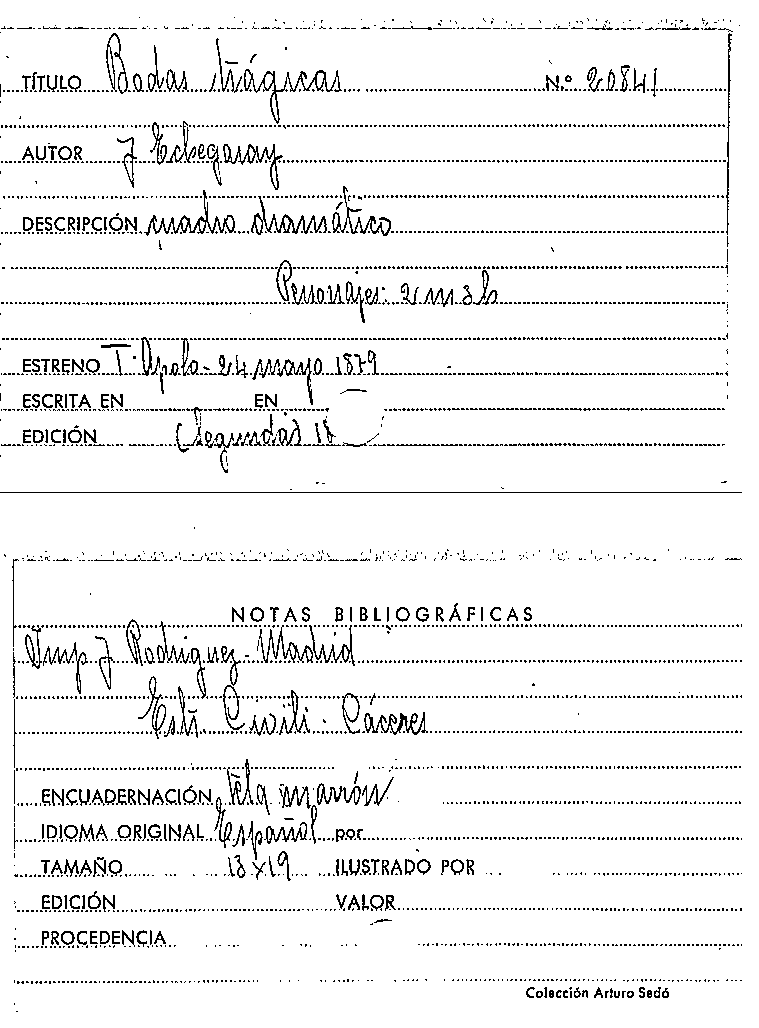 TÍTULO Bodas trágicas N.º 20841
AUTOR J Echegaray
DESCRIPCIÓN cuadro dramático
Personajes: 2 m 3 h
ESTRENO T. Apolo - 24 mayo 1879
ESCRITA EN EN
EDICIÓN (Segunda) 18
NOTAS BIBLIOGRÁFICAS
Imp J Rodriguez - Madrid
Estr. Civili - Cáceres
ENCUADERNACIÓN tela marrón
IDIOMA ORIGINAL Español por
TAMAÑO 13 x 19 ILUSTRADO POR
EDICIÓN VALOR
PROCEDENCIA
Colección Arturo Sedó